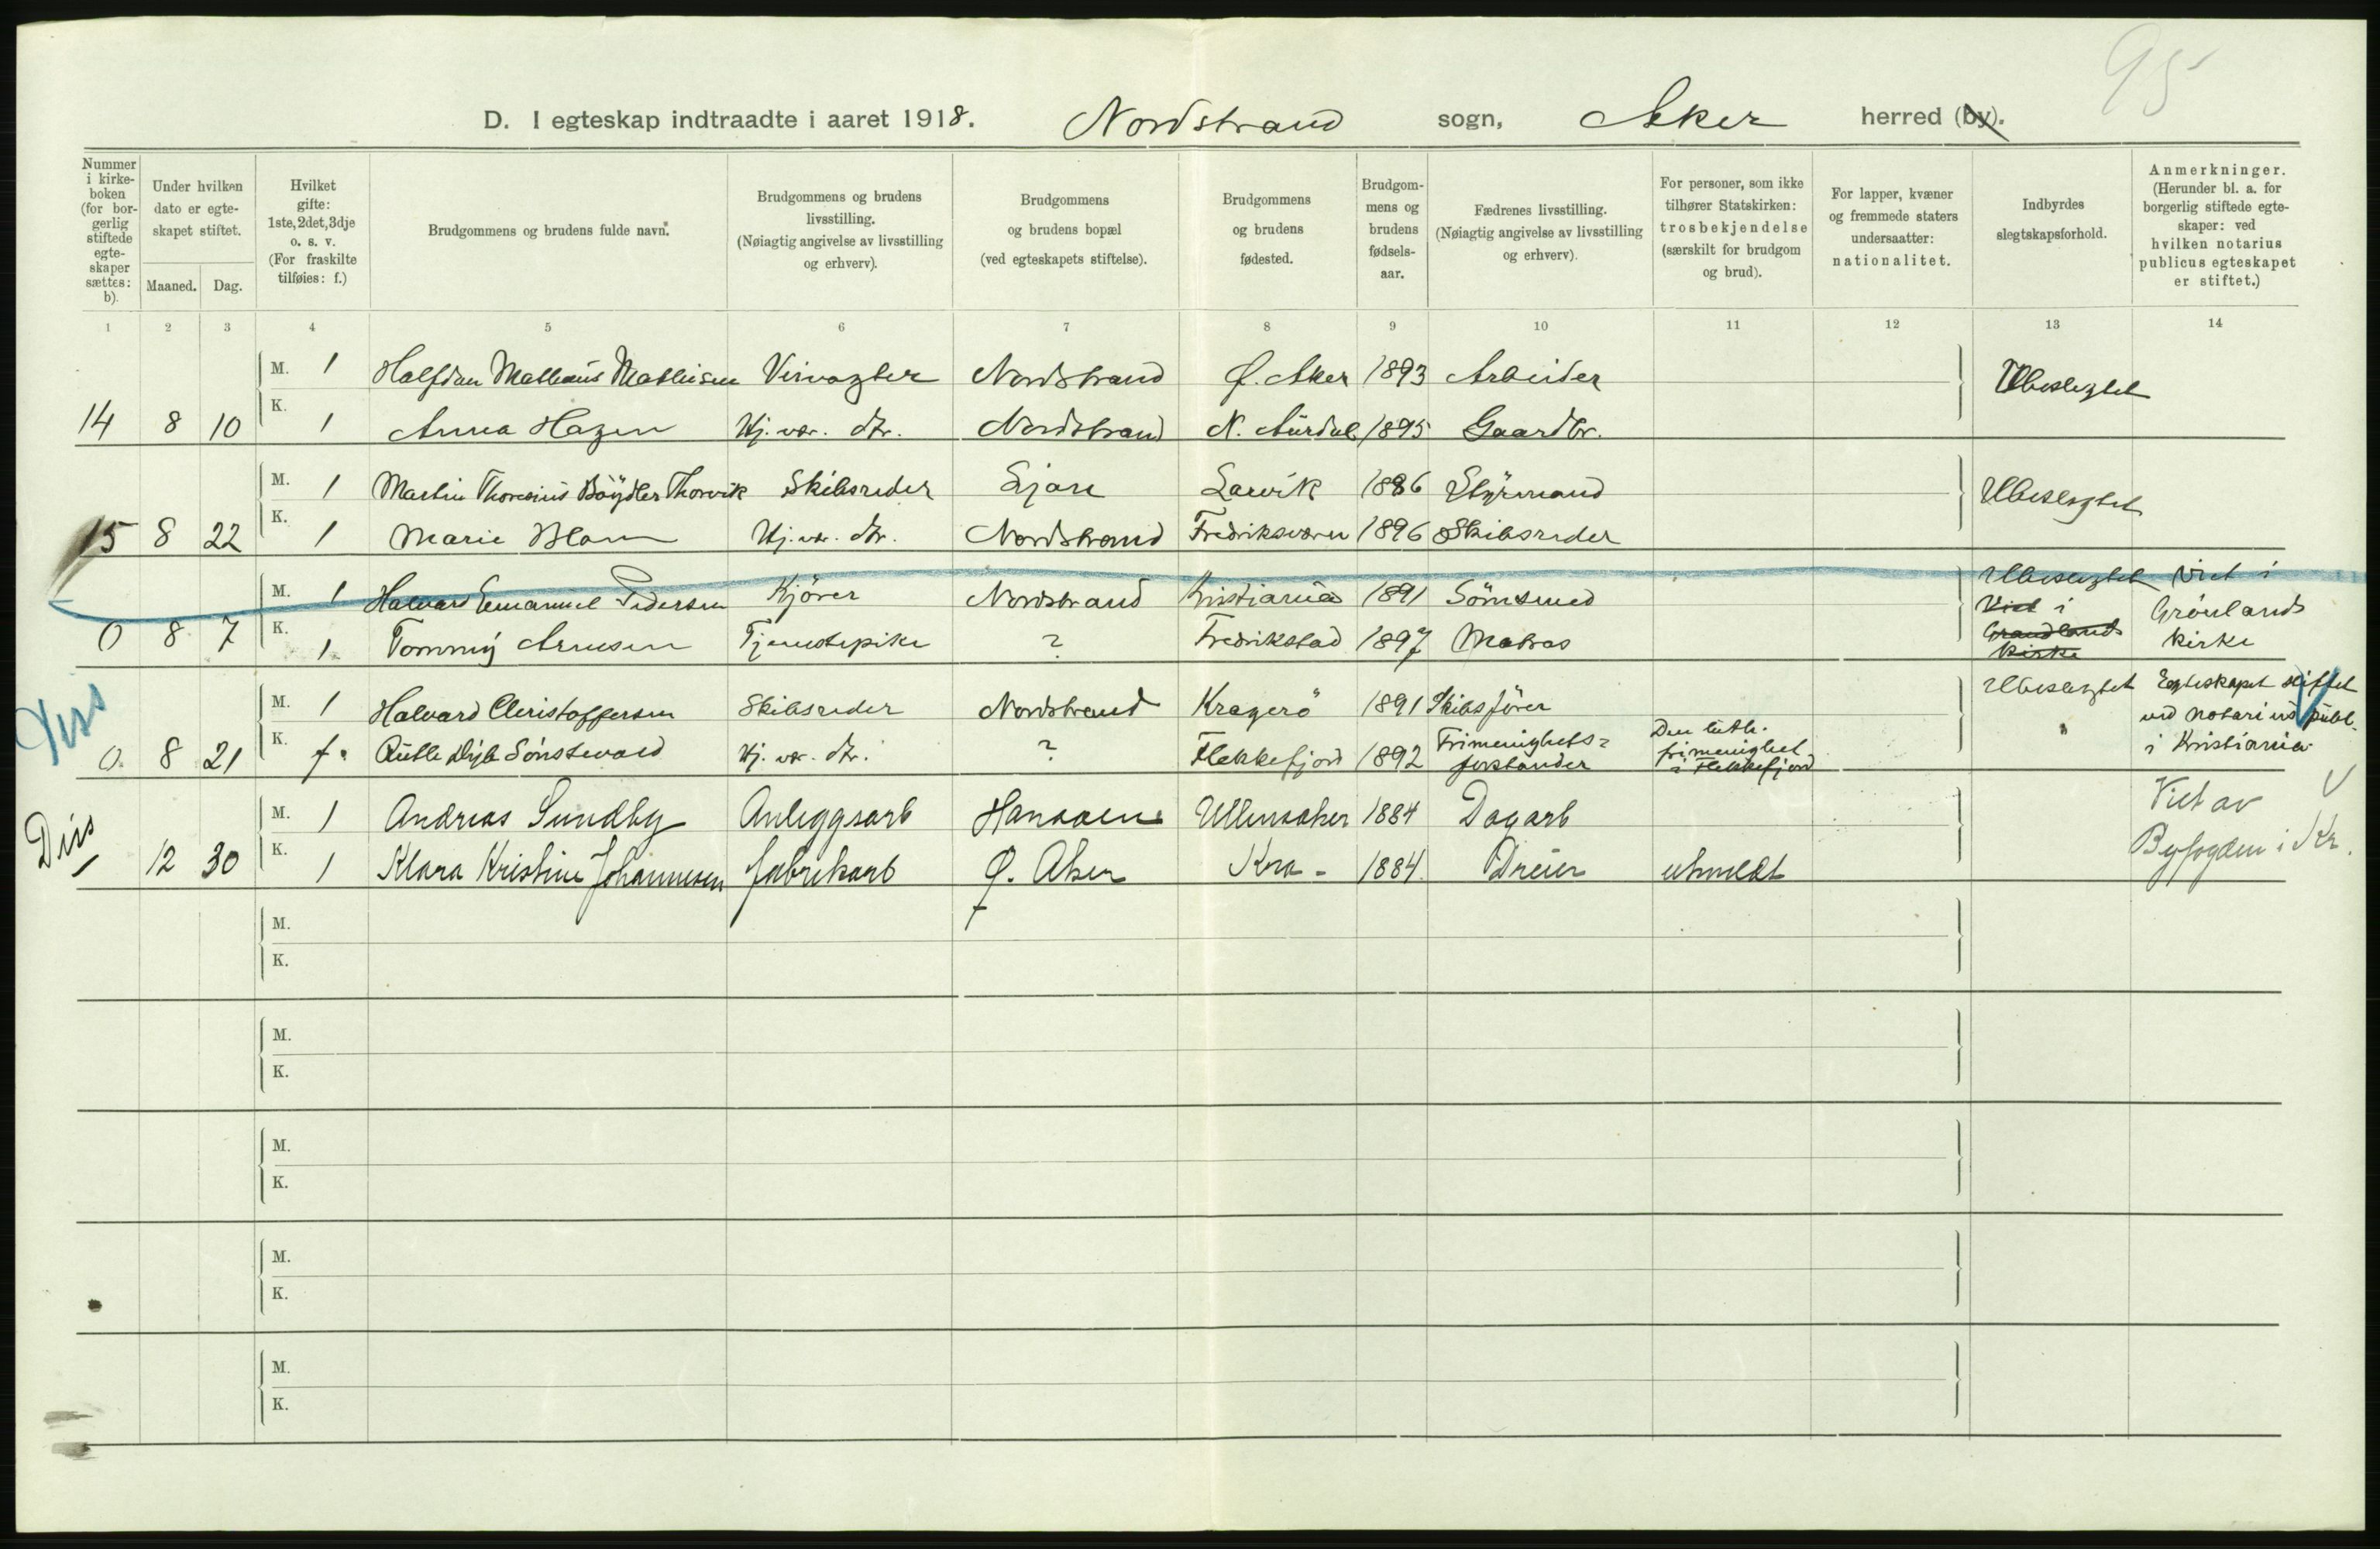 95
D. I egteskap indtraadte i aaret 1918. Nordstrand sogn, Aker herred (by).
Nummer i kirkeboken (for borgerlig stiftede egteskaper sættes: b).
Under hvilken dato er egteskapet stiftet.
Maaned. Dag.
Hvilket gifte: 1ste, 2det, 3dje o. s. v. (For fraskilte tilføies: f.)
Brudgommens og brudens fulde navn.
Brudgommens og brudens livsstilling. (Nøiagtig angivelse av livsstilling og erhverv).
Brudgommens og brudens bopæl (ved egteskapets stiftelse).
Brudgommens og brudens fødested.
Brudgommens og brudens fødselsaar.
Fædrenes livsstilling. (Nøiagtig angivelse av livsstilling og erhverv).
For personer, som ikke tilhører Statskirken: trosbekjendelse (særskilt for brudgom og brud).
For lapper, kvæner og fremmede staters undersaatter: nationalitet.
Indbyrdes slegtskapsforhold.
Anmerkninger. (Herunder bl. a. for borgerlig stiftede egteskaper: ved hvilken notarius publicus egteskapet er stiftet.)
1 2 3 4 5 6 7 8 9 10 11 12 13 14
M. 1 Halfdan Matheus Mathisen Virvagter Nordstrand Ø. Aker 1893 Arbeider Ubeslegtet
14 8 10 K. 1 Anna Hagen Hj. vær. dtr. Nordstrand N. Aurdal 1895 Gaardbr.
M. 1 Martin Thoresius Bøydler Thorvik Skibsreder Ljan Larvik 1886 Styrmand Ubeslegtet
15 8 22 K. 1 Marie Blom Hj. vær. dtr. Nordstrand Fredriksværn 1896 Skibsreder
M. 1 Halvard Emanuel Pedersen Kjører Nordstrand Kristiania 1891 Sömsmed Ubeslegtet Viet i
Viet i Grønlands
0 8 7 K. 1 Tommy Arnesen Tjenestepike ? Fredrikstad 1897 Matros Grønlands kirke kirke
M. 1 Halvard Christoffersen Skibsreder Nordstrand Kragerö 1891 Skibsfører Ubeslegtet Egteskapet stiftet
ved notarius publ.
0. 8 21 K. f. Hj. vær. dtr. ? Flekkefjord 1892 Frimenighetsforstander Den luth. frimenighet i Flekkefjord i Kristiania
Diss M. 1 Andreas Sundby Anleggsarb Ullensaker 1884 Dagarb Viet av
12 30 K. 1 Klara Kristine Johannesen fabrikarb Ø. Aker Kra - 1884. Dreier uhmeldt Byfogden i Kr.
M.
K.
M.
K.
M.
K.
M.
K.
M.
K.